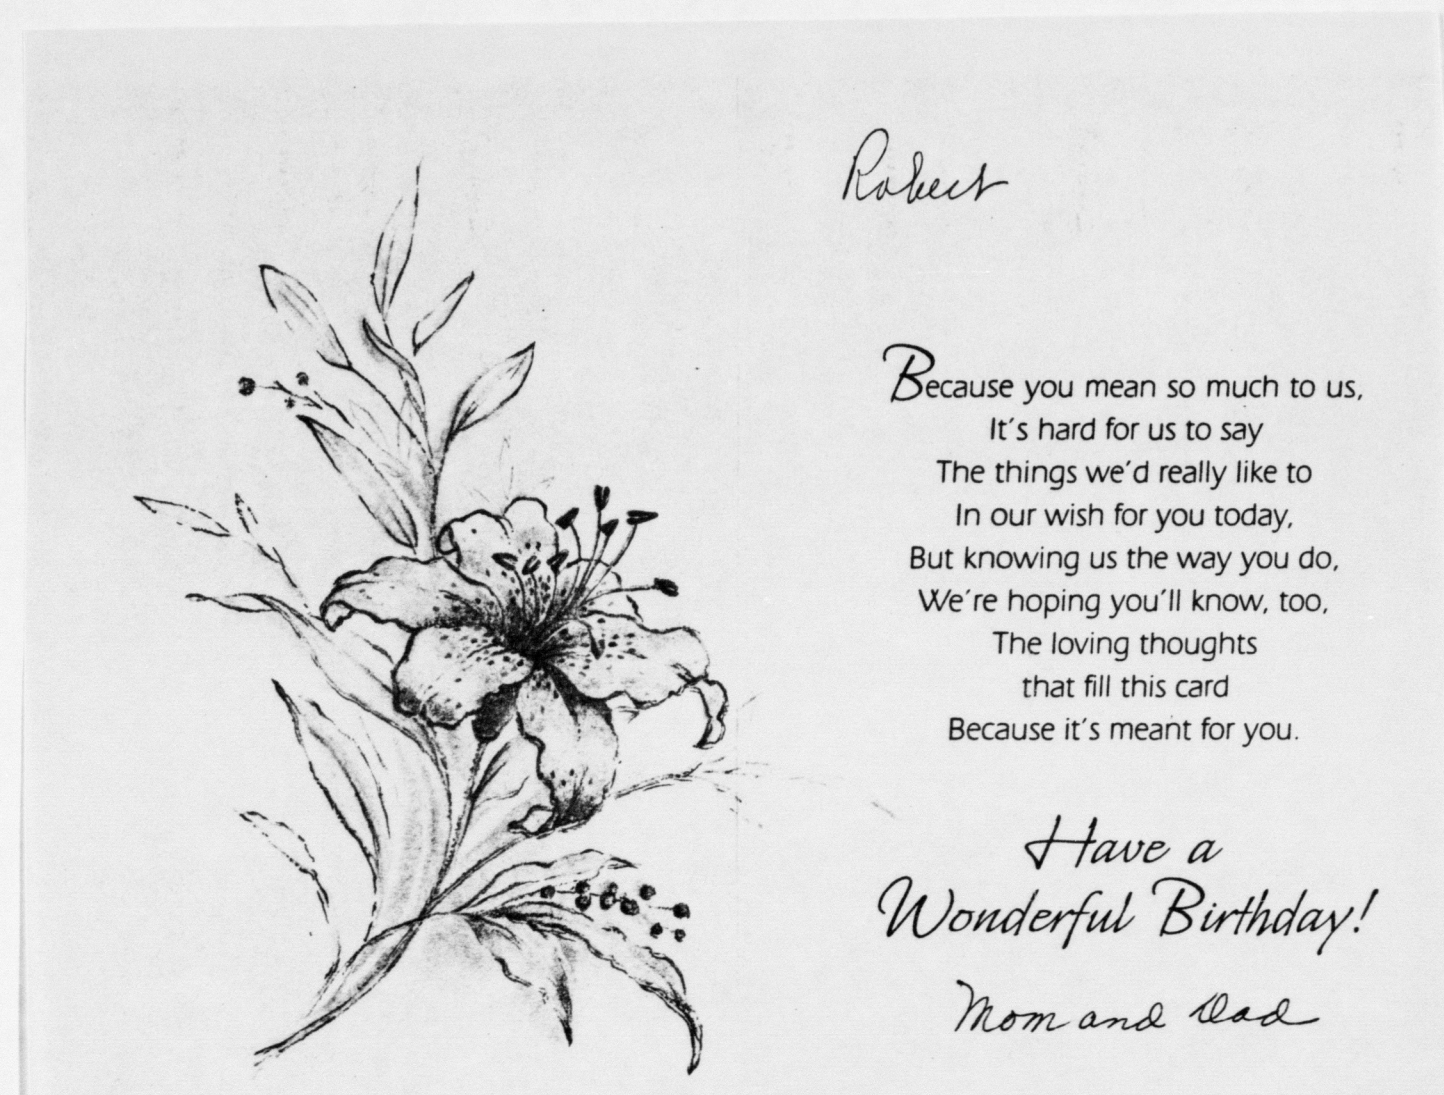 Robert
Because you mean so much to us,
It's hard for us to say
The things we'd really like to
In our wish for you today,
But knowing us the way you do,
We're hoping you'll know, too,
The loving thoughts
that fill this card
Because it's meant for you.
Have a
Wonderful Birthday!
Mom and Dad